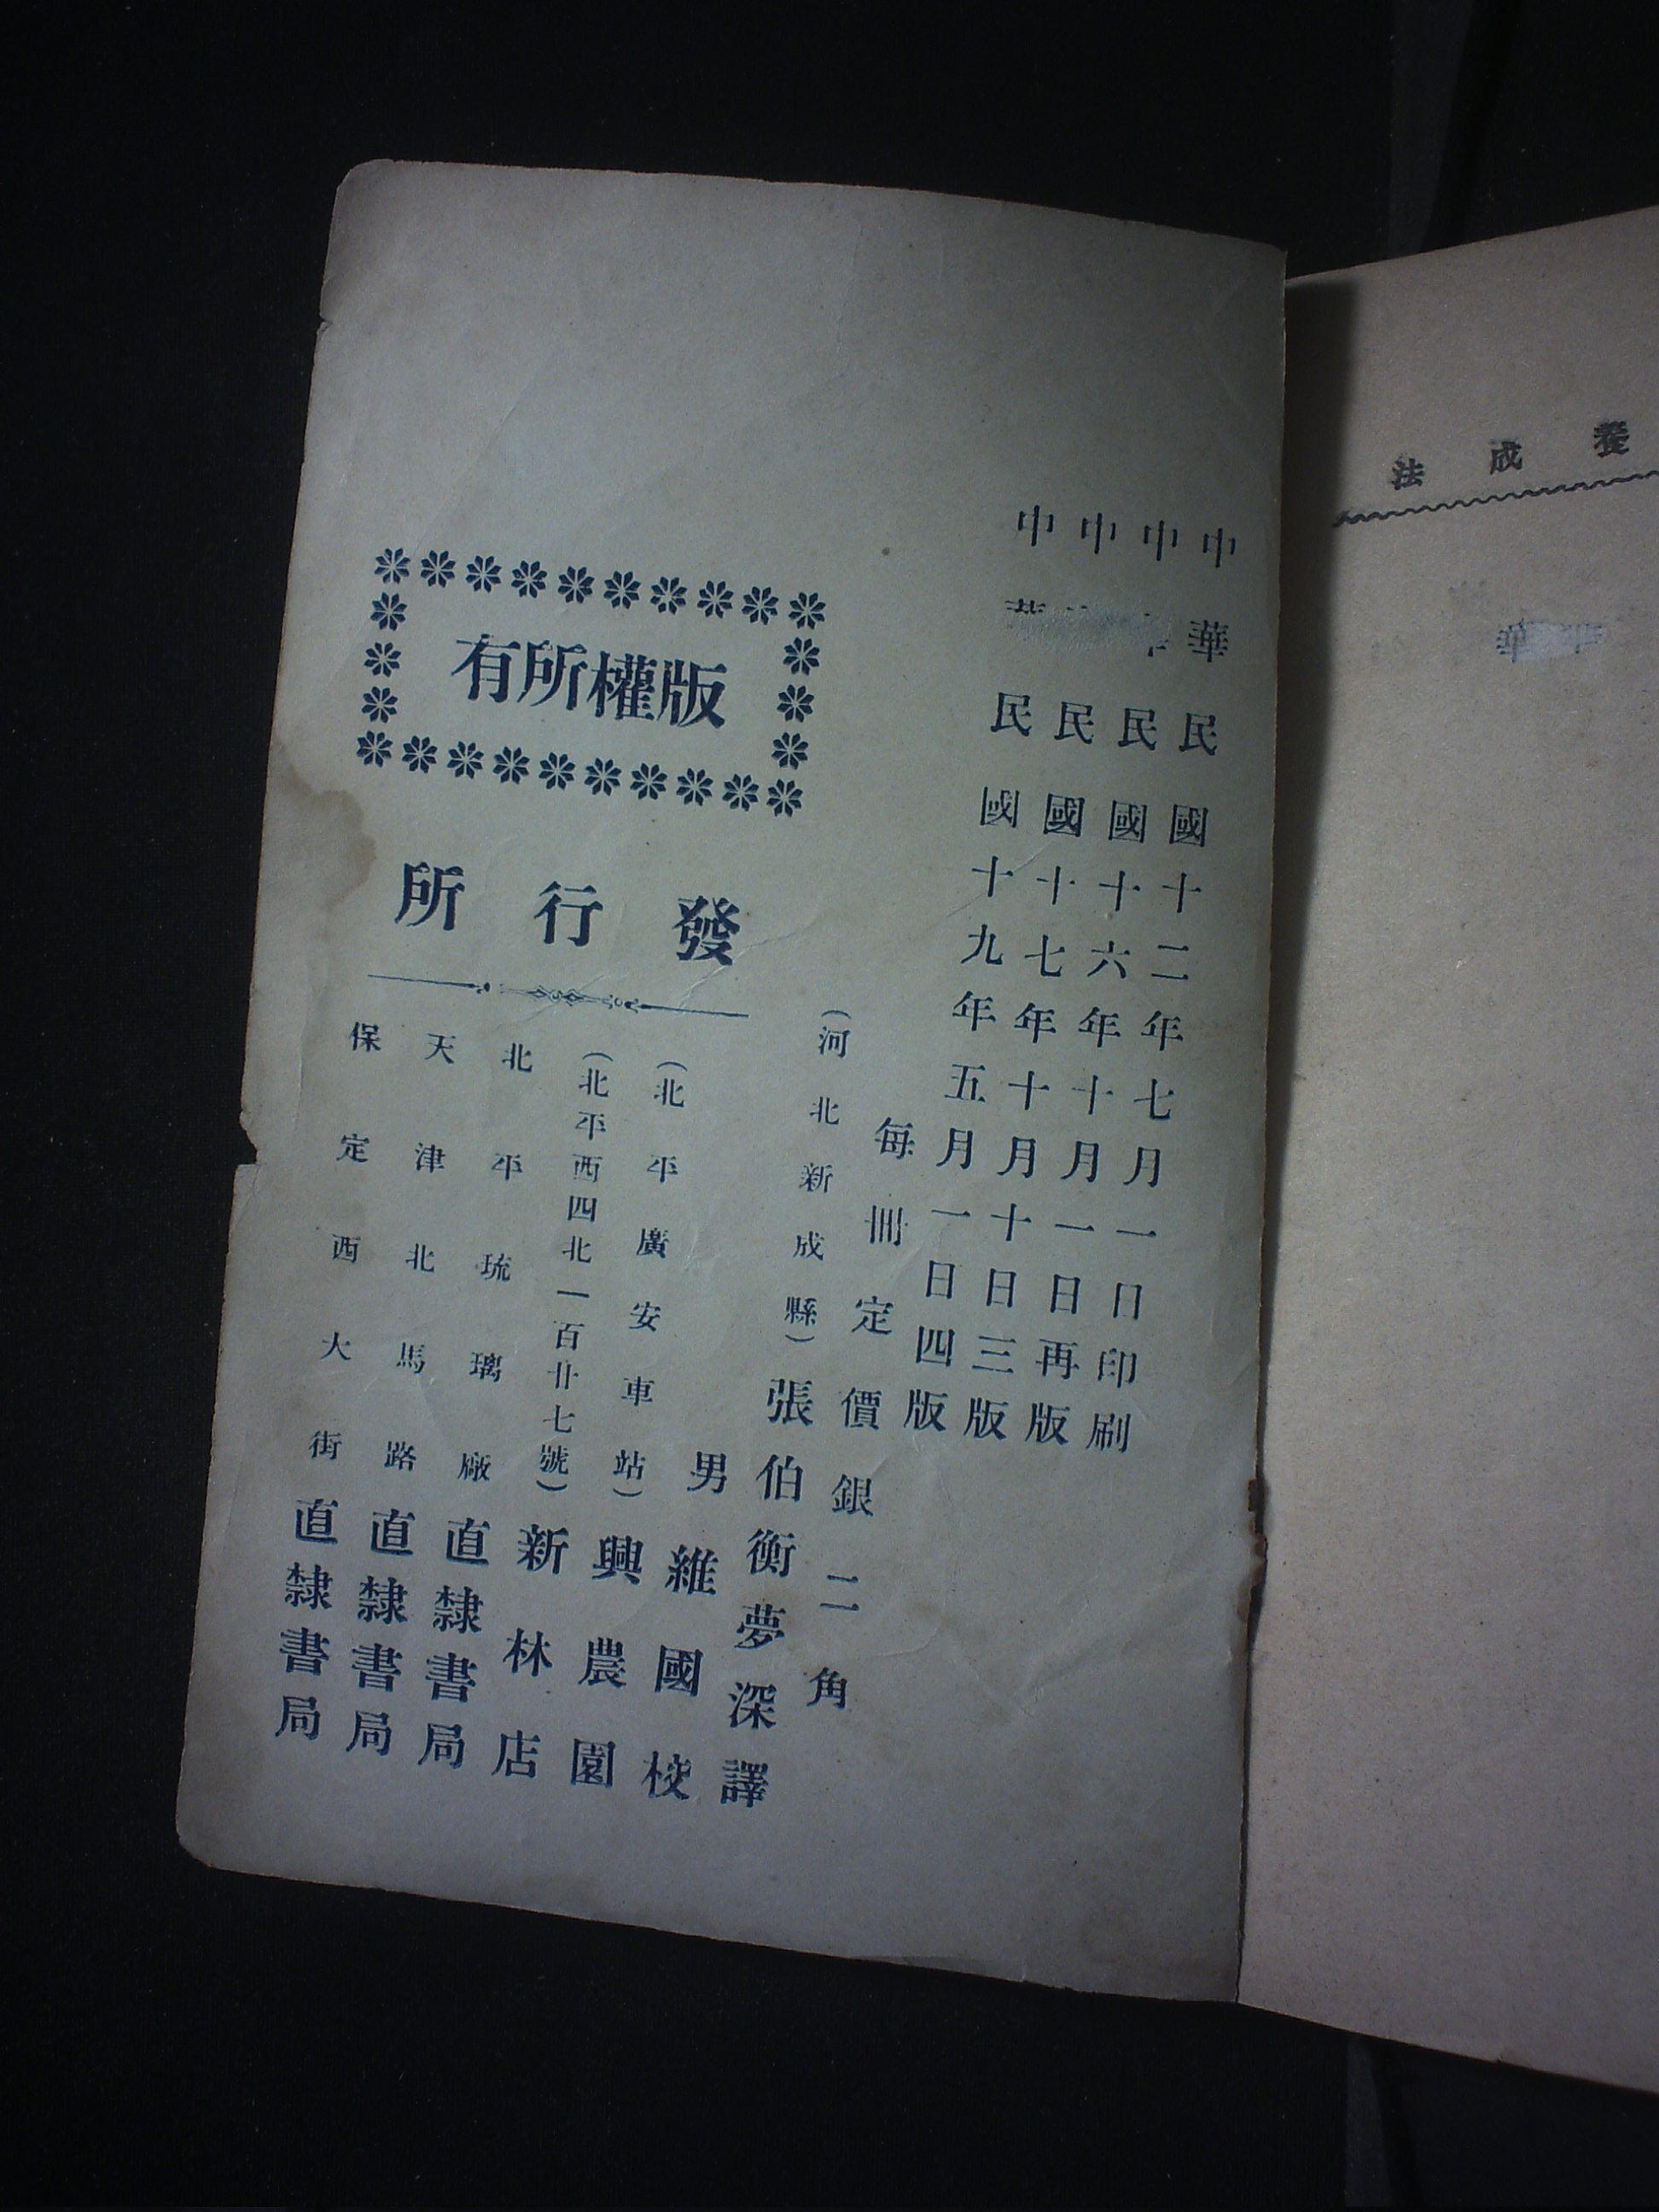 養成法
中華民國十二年七月一日印刷
中民國十六年十月一日再版
中民國十七年十月十日三版
中華民國十九年五月一日四版
每冊定價銀二角
(河北新成縣)張伯衡夢深譯
男維國校
版權所有
發行所
(北平廣安車站)興農園
(北平西四北一百廿七號)新林店
北平琉璃廠直隸書局
天津北馬路直隸書局
保定西大街直隸書局